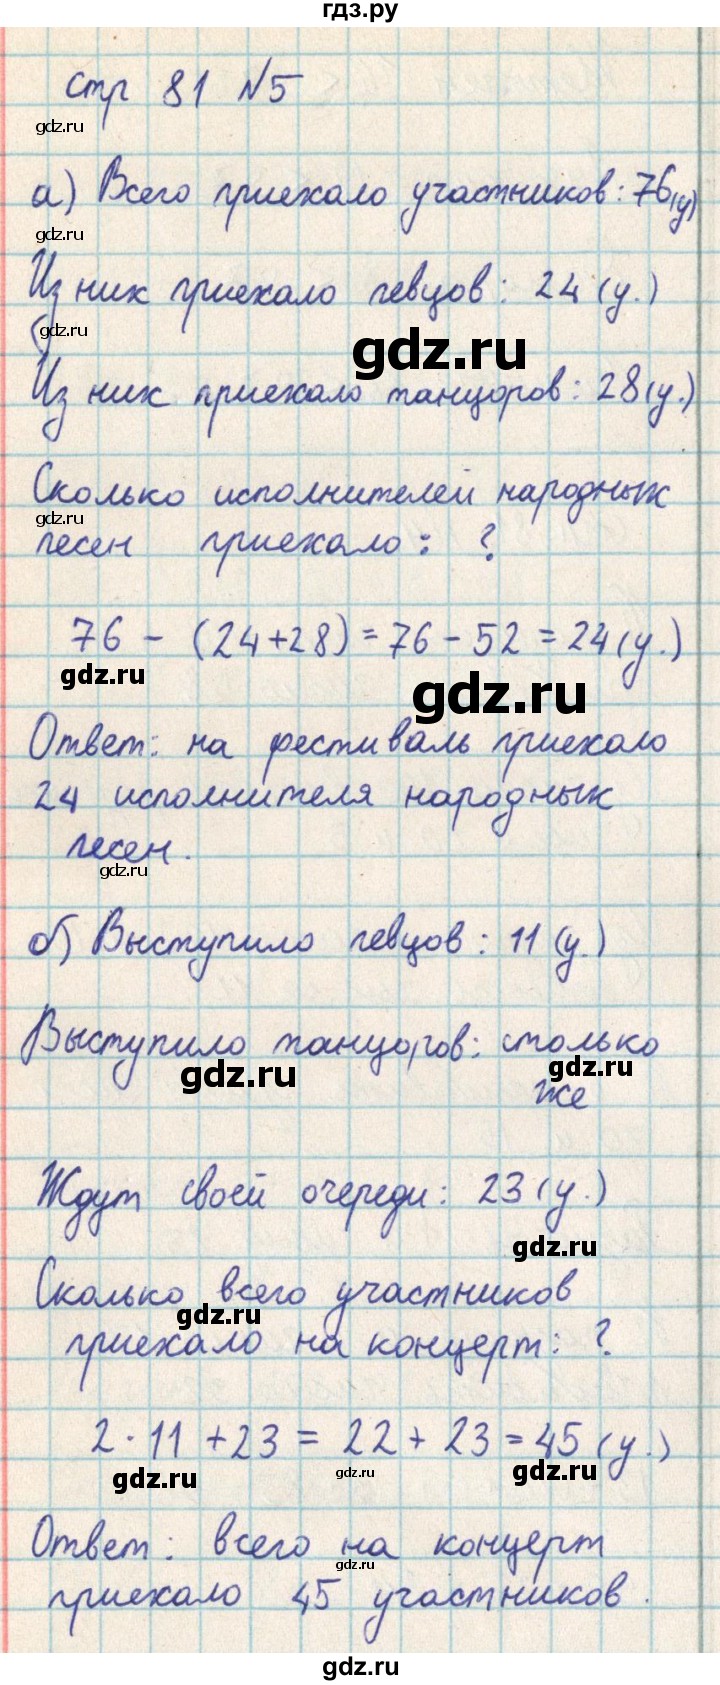 гдз.ру
стр 81 №5
gdz.ru
а) Всего приехало участников: 76(у)
gdz.ru
Из них приехало певцов: 24 (у.)
gdz.ru
gdz.ru
Из них приехало танцоров: 28(у.)
Сколько исполнителей народных
gdz.ru
песен приехало: ?
76 - (24+28) = 76 - 52 = 24(у.)
gdz.ru
gdz.ru
Ответ: на фестиваль приехало
24 исполнителя народных
песен.
gdz.ru
б) Выступило певцов: 11 (у.)
Выступило танцоров: столько
gdz.ru
gdz.ru
же
Ждут своей очереди: 23 (у.)
gdz.ru
Сколько всего участников
gdz.ru
приехало на концерт: ?
2 · 11 + 23 = 22 + 23 = 45 (у.)
gdz.ru
gdz.ru
gdz.ru
Ответ: всего на концерт
gdz.ru
приехало 45 участников.
gdz.ru